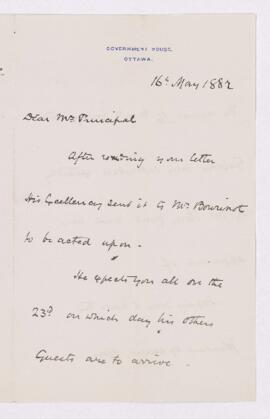 GOVERNMENT HOUSE,
OTTAWA.
16th May 1882
Dear Mr Principal
After reading your letter
His Excellency sent it to Mr Bourinot
to be acted upon.
He expects you all on the
23rd on which day his others
Guests are to arrive.